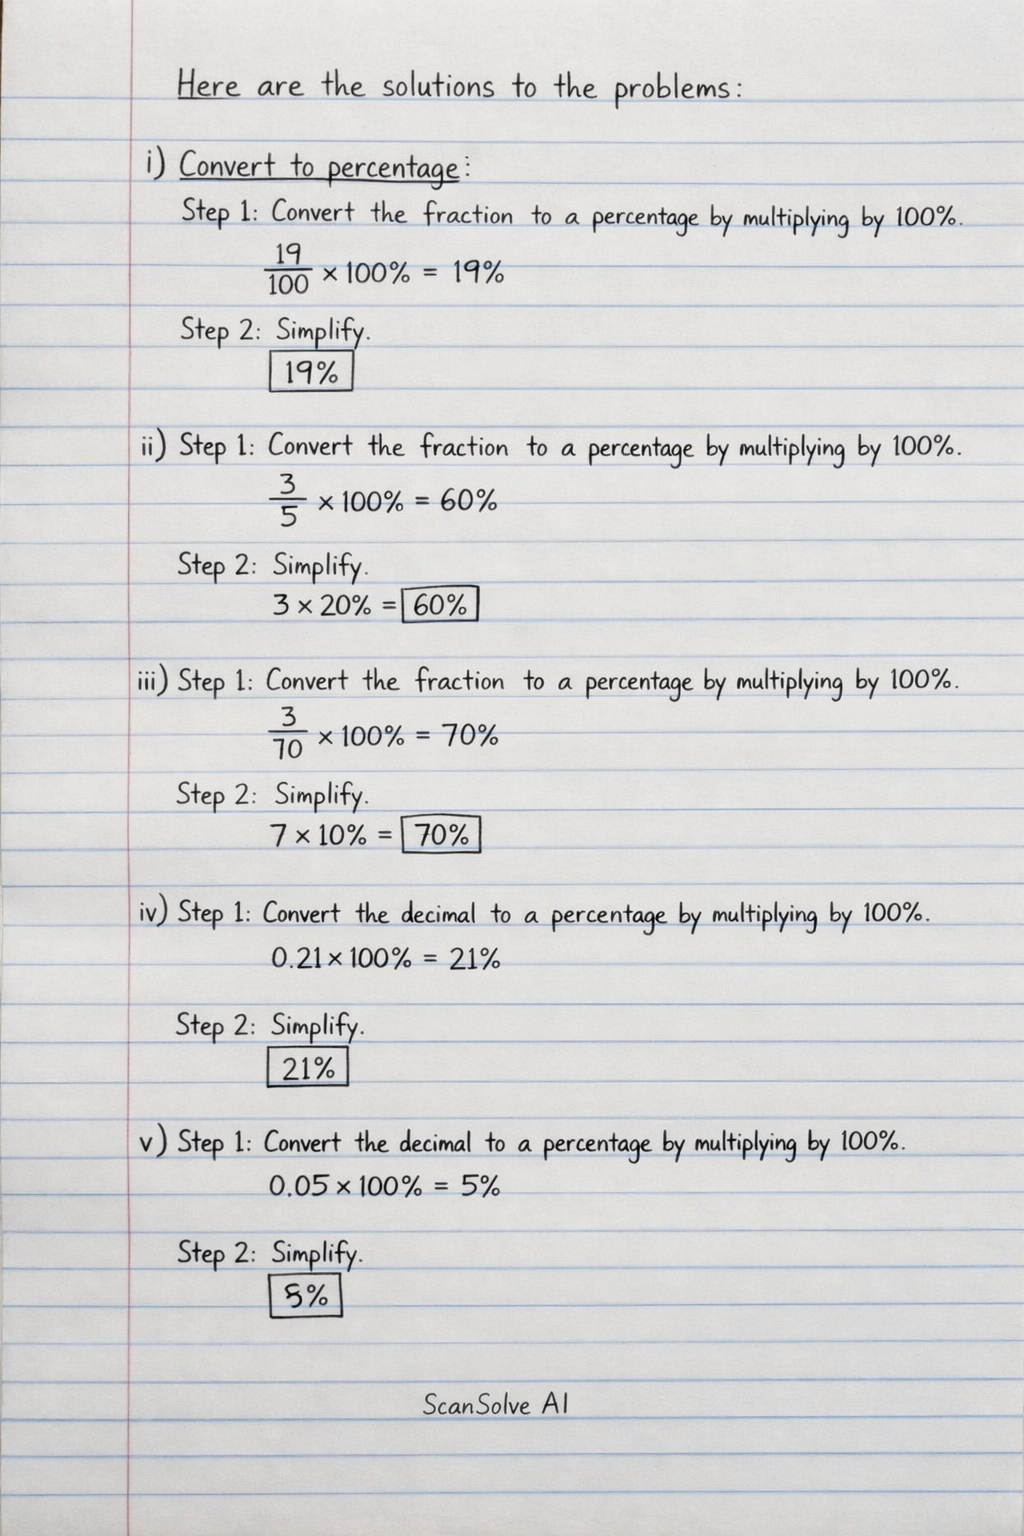 Here are the solutions to the problems:
i) Convert to percentage:
Step 1: Convert the fraction to a percentage by multiplying by 100%.
19/100 × 100% = 19%
Step 2: Simplify.
19%
ii) Step 1: Convert the fraction to a percentage by multiplying by 100%.
3/5 × 100% = 60%
Step 2: Simplify.
3 × 20% = 60%
iii) Step 1: Convert the fraction to a percentage by multiplying by 100%.
3/70 × 100% = 70%
Step 2: Simplify.
7 × 10% = 70%
iv) Step 1: Convert the decimal to a percentage by multiplying by 100%.
0.21 × 100% = 21%
Step 2: Simplify.
21%
v) Step 1: Convert the decimal to a percentage by multiplying by 100%.
0.05 × 100% = 5%
Step 2: Simplify.
5%
ScanSolve AI